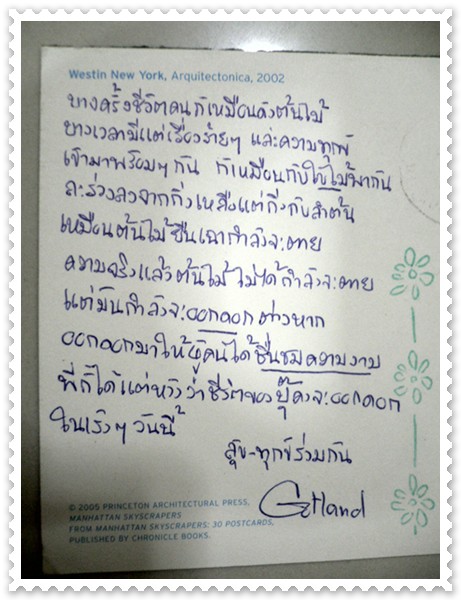 Westin New York, Arquitectonica, 2002
บางครั้งชีวิตคนก็เหมือนดังต้นไม้
บางเวลามีแต่เรื่องร้ายๆ และความทุกข์
เข้ามาพร้อมๆกัน ก็เหมือนกับใบไม้พากัน
ละร่วงลงจากกิ่งเหลือแต่กิ่งกับลำต้น
เหมือนต้นไม้ยืนเฉากำลังจะตาย
ความจริงแล้วต้นไม้ ไม่ได้กำลังจะตาย
แต่มันกำลังจะออกดอกต่างหาก
ออกดอกมาให้ผู้คนได้ชื่นชมความงาม
พี่ก็ได้แต่หวังว่าชีวิตของปุ๊คงจะออกดอก
ในเร็วๆวันนี้
สุข-ทุกข์ร่วมกัน
© 2005 PRINCETON ARCHITECTURAL PRESS,
MANHATTAN SKYSCRAPERS
FROM MANHATTAN SKYSCRAPERS: 30 POSTCARDS,
PUBLISHED BY CHRONICLE BOOKS.